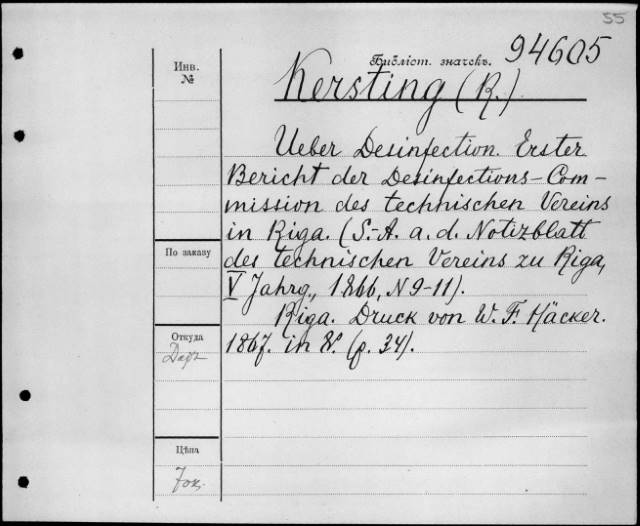 55
Инв.
№
Библіот. значекъ. 94605
Kersting (R.)
Ueber Desinfection. Erster
Bericht der Desinfections-Com-
mission des technischen Vereins
in Riga. (S.-A. a. d. Notizblatt
des technischen Vereins zu Riga,
V Jahrg., 1866, N 9-11).
Riga. Druck von W. F. Häcker.
1867. in 8º. (p. 34).
По заказу
Откуда
Даръ
Цѣна